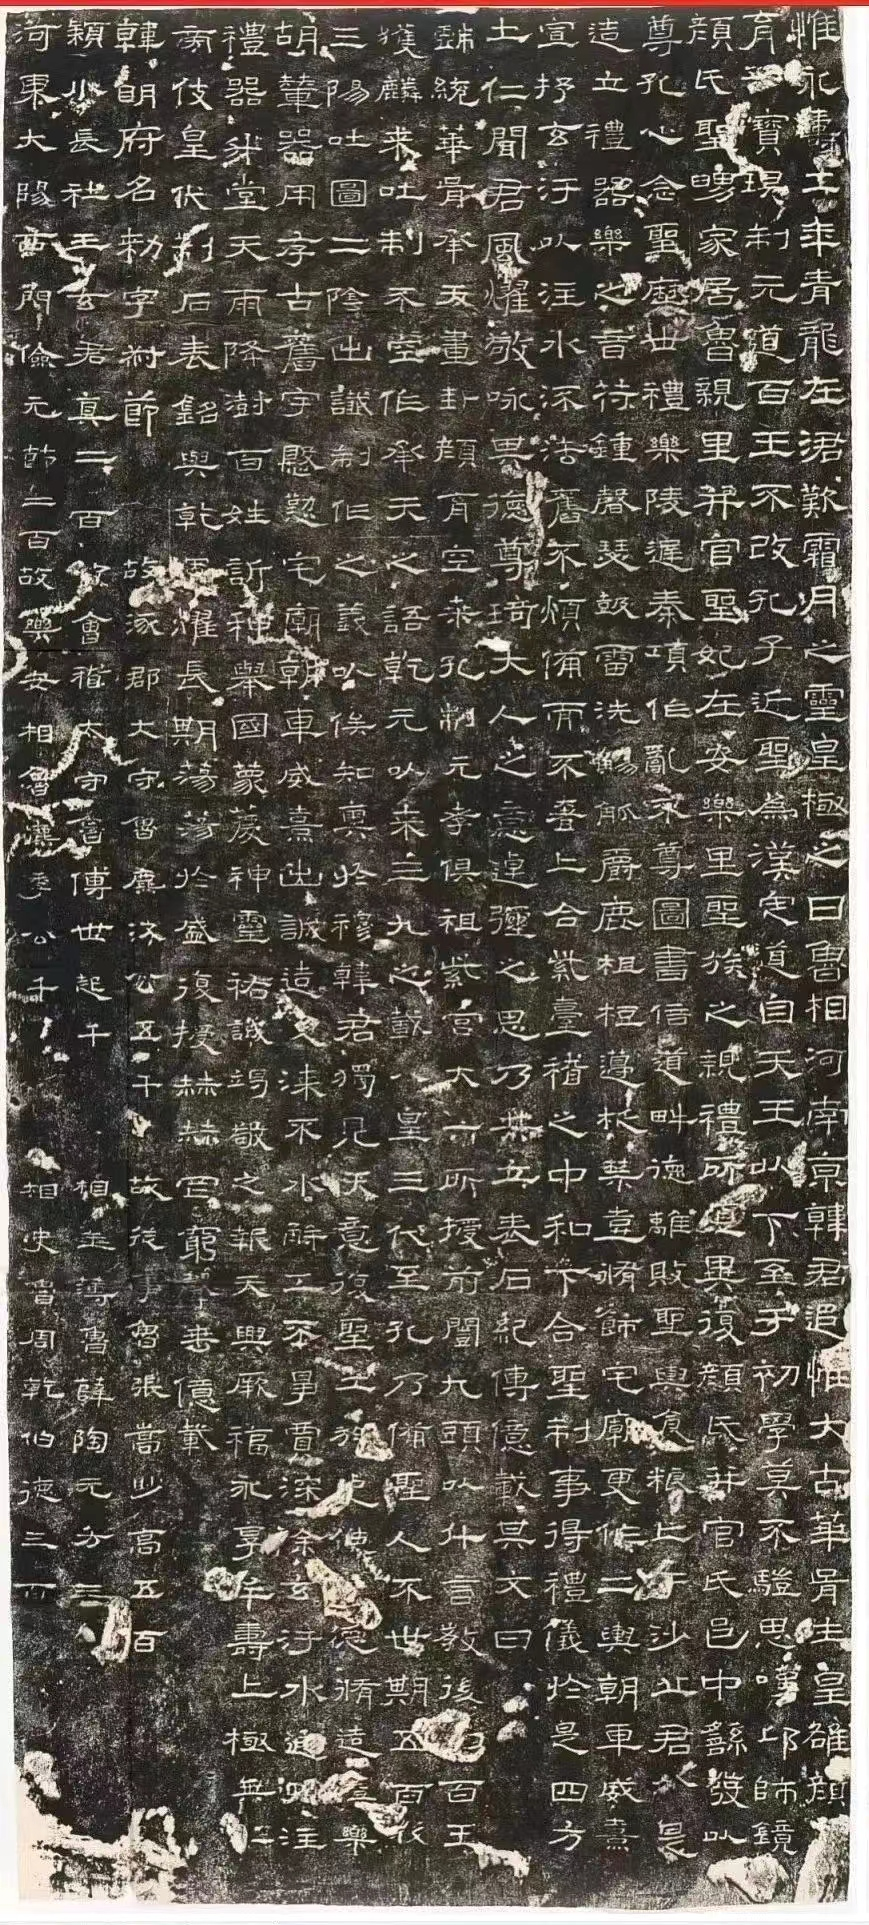 惟永壽二年青龍在涒歎霜月之靈皇極之日魯相河南京韓君追惟大古華胥生皇雄顏
育空寶俱制元道百王不改孔子近聖為漢定道自天王以下至于初學莫不驥思嘆卬師鏡
顏氏聖舅家居魯親里并官聖妃在安樂里聖族之親禮所宜異復顏氏并官氏邑中繇發以
尊孔心念聖歷世禮樂陵遲秦項作亂不尊圖書倍道畔德離敗聖輿食糧亡于沙丘君於是
造立禮器樂之音符鍾磬瑟鼓雷洗觴觚爵鹿柤梪籩柉禁壺脩飾宅廟更作二輿朝車威熹
宣抒玄汙以注水流法舊不煩備而不奢上合紫臺稽之中和下合聖制事得禮儀於是四方
土仁聞君風燿敬咏其德尊琦大人之意逴彌之思乃共立表石紀傳億載其文曰
統華胥承天畫卦顏育空桑孔制元孝俱祖紫宮大一所授前闓九頭以什言教後制百王
獲麟來吐制不空作承天之語乾元以來三九之載八皇三代至孔乃備聖人不世期五百載
三陽吐圖二陰出讖制作之義以俟知奧於穆韓君獨見天意復聖二族逴越絕思脩造禮樂
胡輦器用存古舊宇殷勤宅廟朝車威熹出誠造更漆不水解工不爭賈深除玄汙水通四注
禮器升堂天雨降澍百姓訢和舉國蒙慶神靈祐誠竭敬之報天與厥福永享牟壽上極華紫
旁伎皇代刊石表銘與乾運燿長期蕩蕩於盛復授赫赫罔窮聲垂億載
韓明府名勑字叔節 故涿郡大守魯麃次公五千 故從事魯張嵩眇高五百
穎川長社王玄君真二百 故會稽大守魯傅世起千 相主簿魯薛陶元方三百
河東大陽西門儉元節二百 故樂安相魯麃季公千 相史魯周乾伯德三百